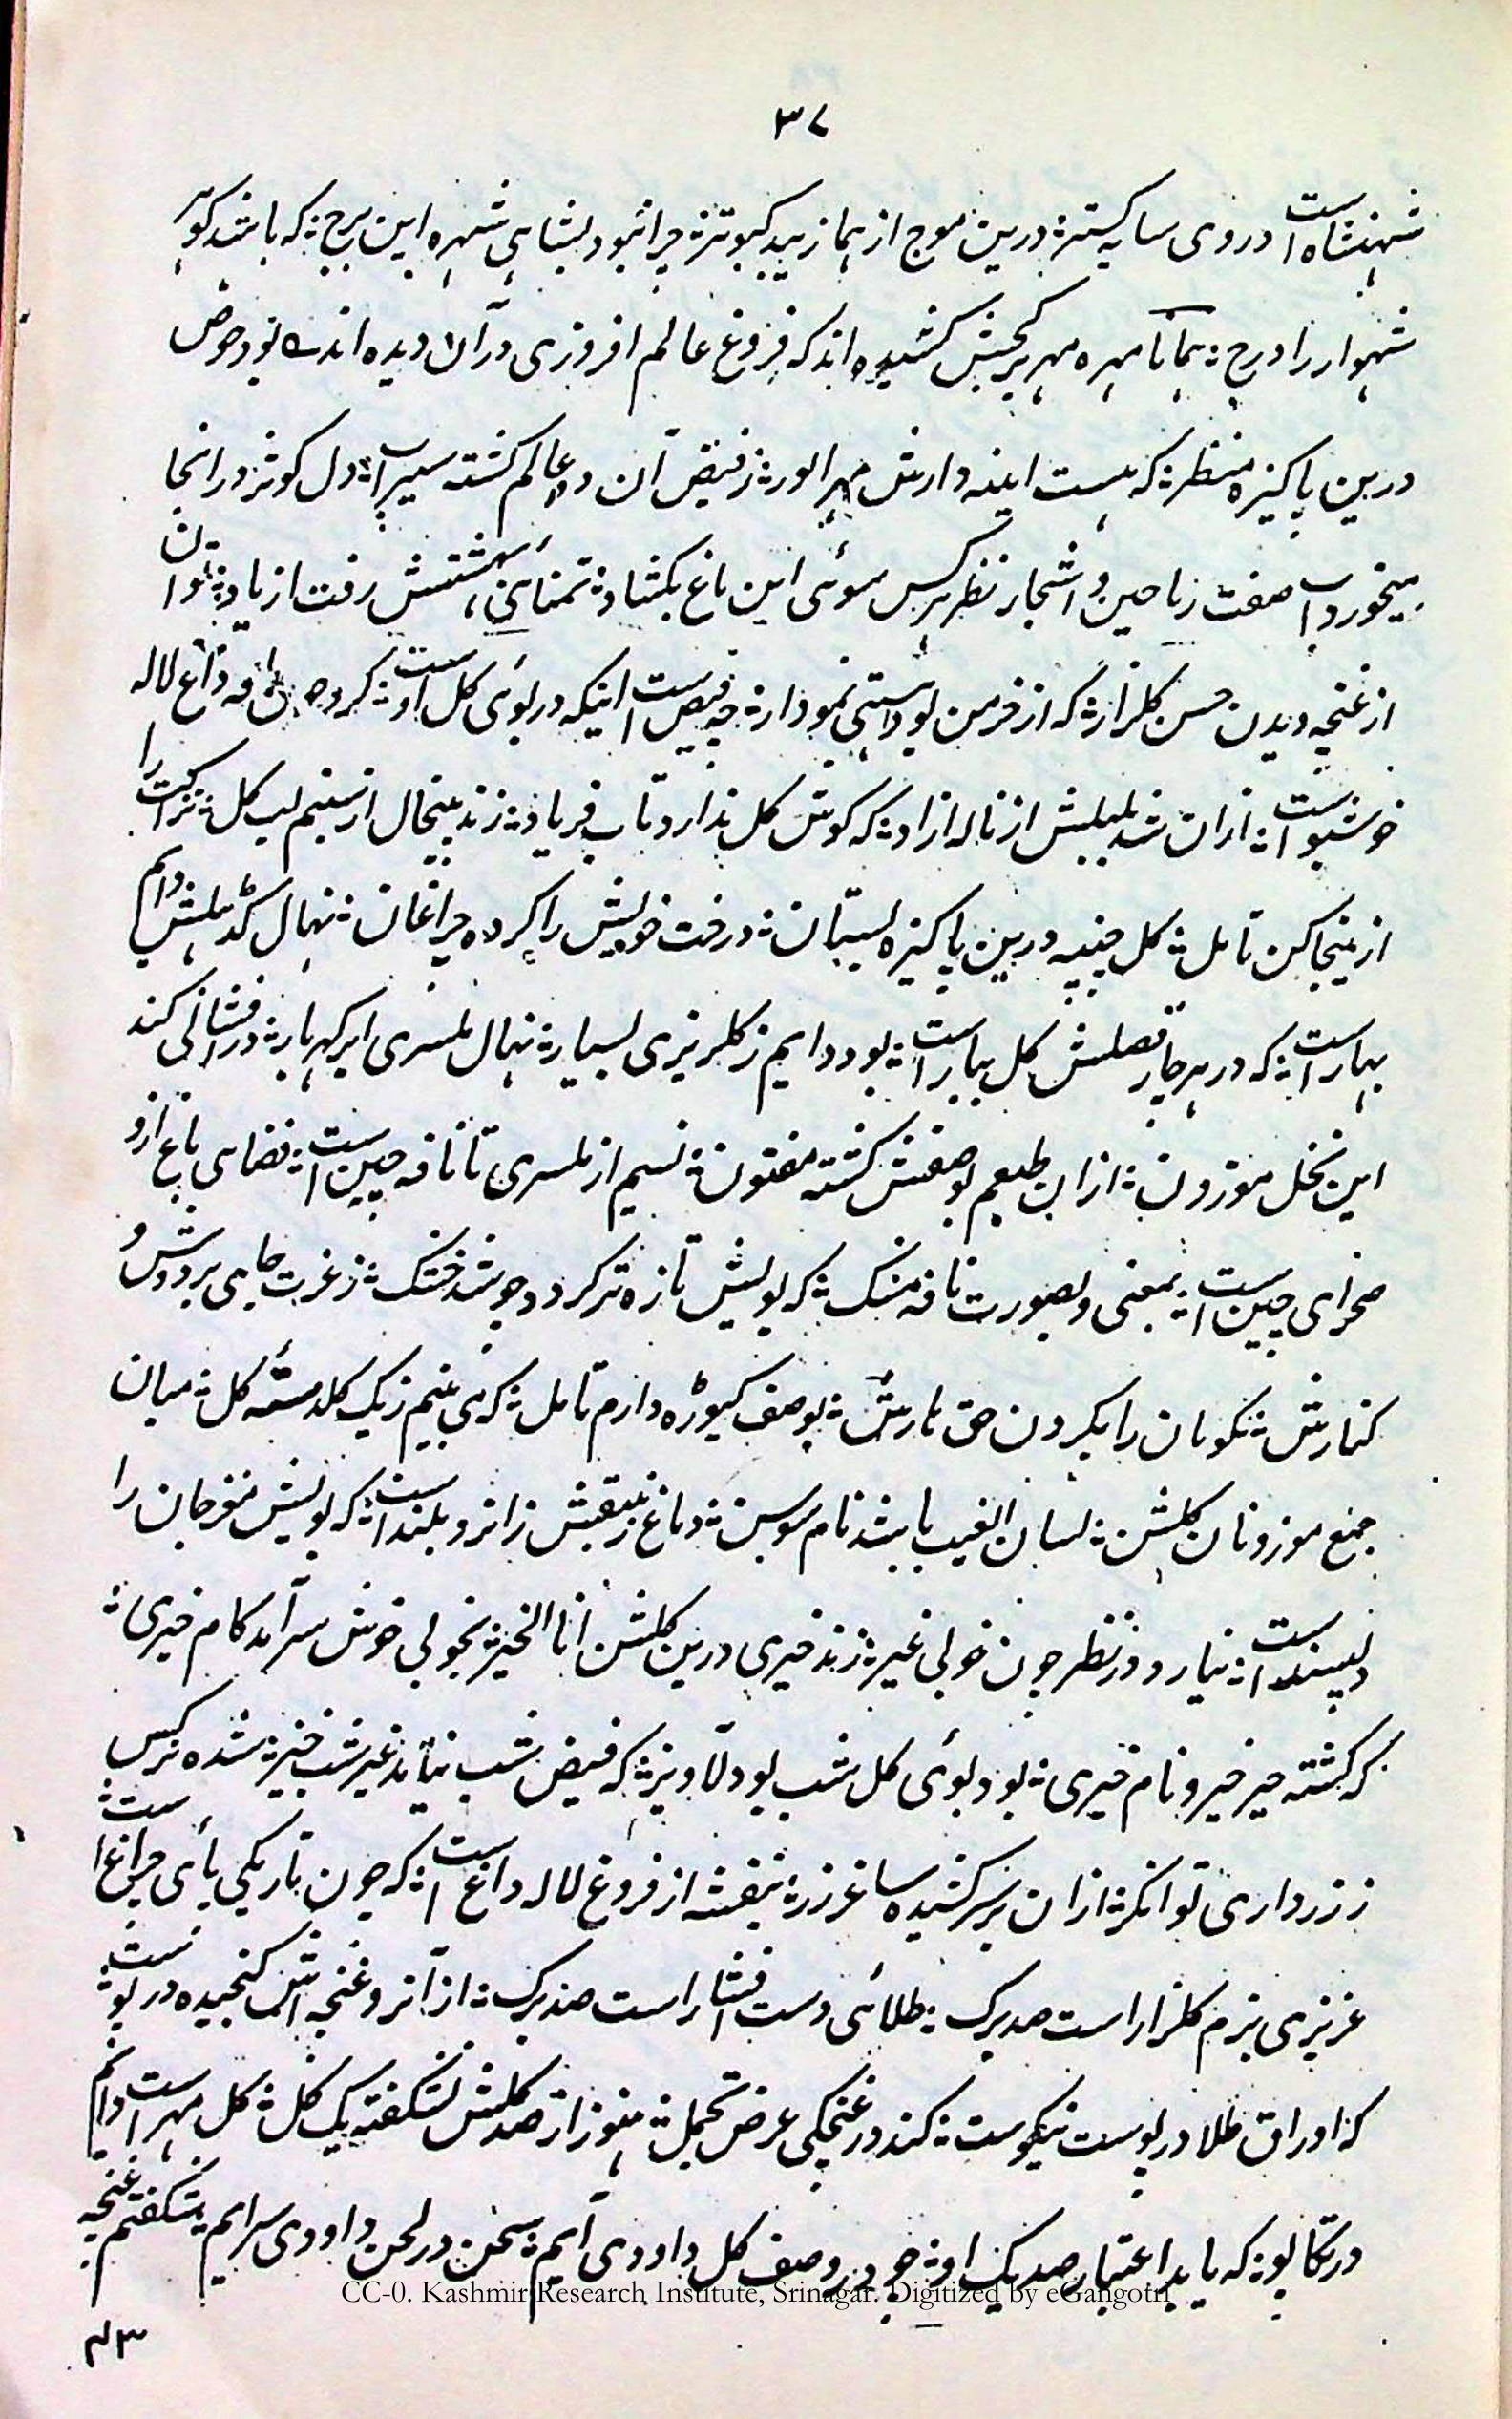 ۳۷
شہنشاہ است دروی سایہ گستر ؞ درین موج از ہما زیبد کبوتر ؞ چرا نبود بشاہی شہرہ این برج ؞ کہ باشد گوہر
شہوار را درج ؞ ہمانا مہرہ مہر بر گچش کشیدہ اند کہ فروغ عالم افروزی در آن دیدہ اند بود حوض
درین پاکیزہ منظر ؞ کہ ہست اینہ دارش مہر انور ؞ ز فیض آن دو عالم گشتہ سیراب ؞ دل کوثر در انجا
میخورد آب صفت ریاحین و اشجار نظر ہر کس سوئی این باغ بکشاد ؞ تمنائی بہشتش رفت از یاد ؞ توان
از غنچہ دیدن حسن گلزار ؞ کہ از خرمن بود مشتی نمودار ؞ چہ فیض است اینکہ در بوئی گل اوست ؞ کہ داغ لالہ
خوشبو است ؞ ازان شد بلبلش از نالہ ازاد ؞ کہ گوش گل ندارد تاب فریاد ؞ زند بیخال از شبنم لب گل ؞ نزاکت را
از ینجا کن تامل ؞ گل چنپہ درین پاکیزہ بستان ؞ درخت خویش را کردہ چراغان ؞ نہال گدہلش دایم
بہار است ؞ کہ در ہر چار فصلش گل ببار است ؞ بود دایم ز گلریزی بسیار ؞ نہال بلسری ابر گہربار ؞ در فشانی کند
این نخل موزون ؞ ازان طبعم بوصفش گشتہ مفتون ؞ نسیم از بلسری تا نافہ چین است ؞ فضای باغ ازو
صحرای چین است ؞ بمعنی و بصورت نافہ مشک ؞ کہ بویش تازہ تر گردد چو شد خشک ؞ ز غربت جامی بر دوش و
کنارش ؞ نکویان را بگردن حق یارش ؞ بوصف کیوڑہ دارم تامل ؞ کہ می بینم ز یک گلدستہ گل ؞ میان
جمع موزونان گلشن ؞ لسان الغیب باشد نام سوسن ؞ دماغ زنبقش زانرو بلند است ؞ کہ بویش مغز جان را
دلپسند است ؞ نیارد در نظر چون خوبی غیر ؞ زند خیری درین گلشن انا الخیر ؞ بخوبی خوش سرآمد کام خیری ؞
کہ گشتہ خیر خیر و نام خیری ؞ بود بوئی گل شب بو دلآویز ؞ کہ فیض شب نیابد غیر شب خیز ؞ شدہ نرگس
ز زرداری توانگر ؞ ازان بر سر کشیدہ ساغر زر ؞ بنفشہ از فروغ لالہ داغ است ؞ کہ چون تاریکی پائی چراغ است ؞
عزیزی بزم گلزار است صدبرگ ؞ طلائی دست افشار است صدبرگ ؞ از آنرو غنچہ اش گنجیدہ در پوست ؞
کہ اوراق طلا در پوست نیکوست ؞ کند در غنچگی عرض تحمل ؞ ہنوز از صد گلش نشکفتہ یک گل ؞ گل مہر است دایم
در تکاپو ؞ کہ یابد اعتبار صد یک او ؞ چو در وصف گل داودی آیم ؞ سخن در لحن داودی سرایم ؞ شگفتم غنچہ
CC-0. Kashmir Research Institute, Srinagar. Digitized by eGangotri